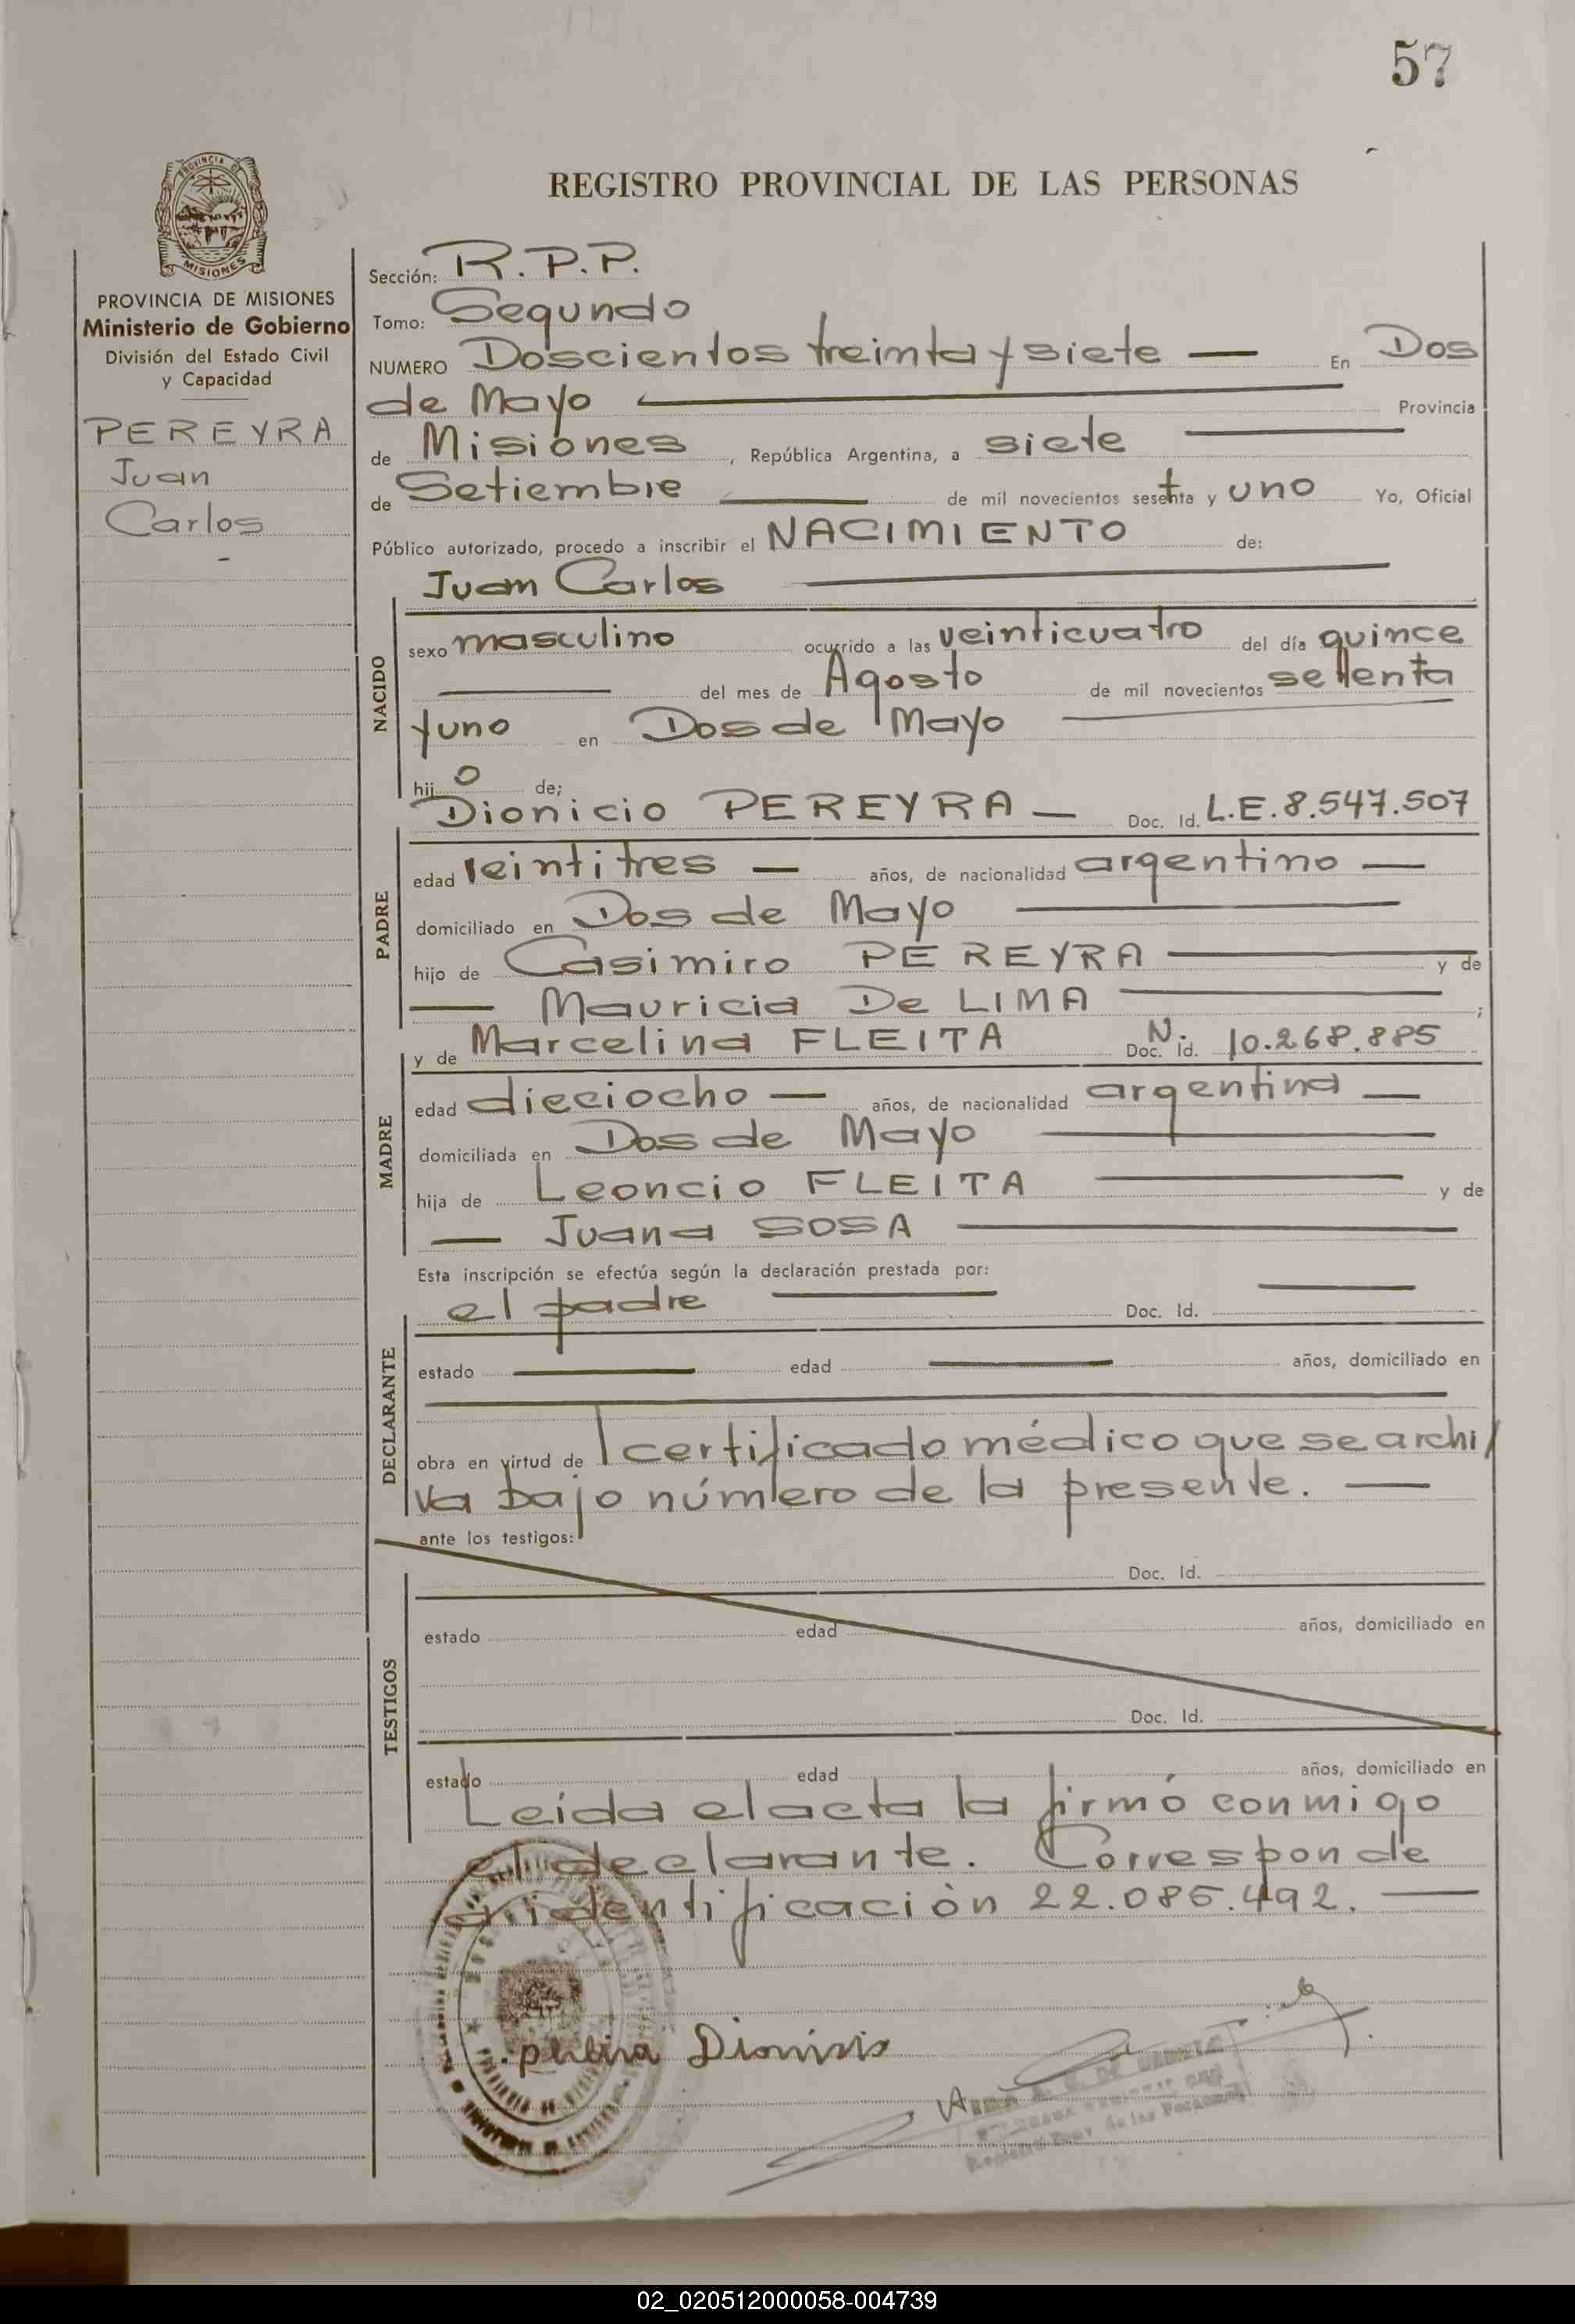 57
REGISTRO PROVINCIAL DE LAS PERSONAS
PROVINCIA DE MISIONES
PROVINCIA DE MISIONES
Ministerio de Gobierno
División del Estado Civil
y Capacidad
PEREYRA
Juan
Carlos
-
Sección: R.P.P.
Tomo: Segundo
NUMERO Doscientos treinta y siete — En Dos
de Mayo — Provincia
de Misiones, República Argentina, a siete —
de Setiembre — de mil novecientos setenta y uno Yo, Oficial
Público autorizado, procedo a inscribir el NACIMIENTO de:
Juan Carlos —
NACIDO
sexo masculino ocurrido a las veinticuatro del día quince
— del mes de Agosto de mil novecientos setenta
y uno en Dos de Mayo —
hijo de;
Dionicio PEREYRA — Doc. Id. L.E. 8.547.507
PADRE
edad veintitres — años, de nacionalidad argentino —
domiciliado en Dos de Mayo —
hijo de Casimiro PEREYRA — y de
— Mauricia De LIMA — ;
y de Marcelina FLEITA Doc. Id. N. 10.268.885
MADRE
edad dieciocho — años, de nacionalidad argentina —
domiciliada en Dos de Mayo —
hija de Leoncio FLEITA — y de
— Juana SOSA —
Esta inscripción se efectúa según la declaración prestada por:
el padre — Doc. Id. —
DECLARANTE
estado — edad — años, domiciliado en
—
obra en virtud de certificado médico que se archi/
va bajo número de la presente. —
ante los testigos:
Doc. Id.
TESTIGOS
estado edad años, domiciliado en
Doc. Id.
estado edad años, domiciliado en
Leída el acta la firmó conmigo
el declarante. Corresponde
identificación 22.085.492. —
Dionisio
02_020512000058-004739